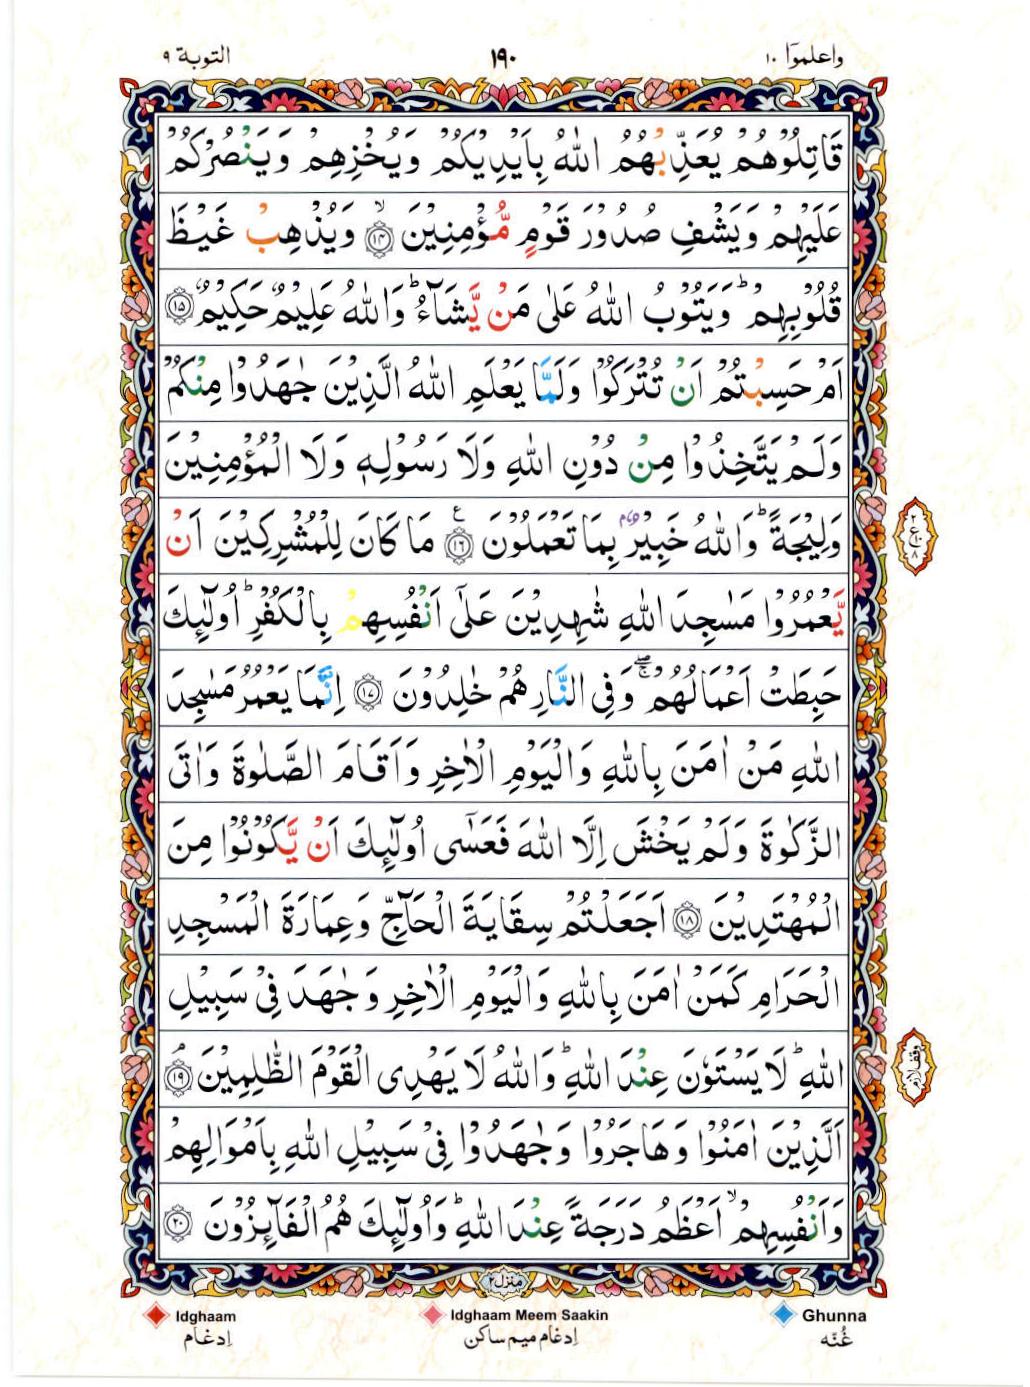 واعلموٓا ١٠
١٩٠
التوبة ٩
قَاتِلُوْهُمْ يُعَذِّبْهُمُ اللّٰهُ بِاَيْدِيْكُمْ وَيُخْزِهِمْ وَيَنْصُرْكُمْ
عَلَيْهِمْ وَيَشْفِ صُدُوْرَ قَوْمٍ مُّؤْمِنِيْنَ ۙ‏﴿۱۴﴾ وَيُذْهِبْ غَيْظَ
قُلُوْبِهِمْ ؕ وَيَتُوْبُ اللّٰهُ عَلٰى مَنْ يَّشَآءُ ؕ وَاللّٰهُ عَلِيْمٌ حَكِيْمٌ ﴿۱۵﴾
اَمْ حَسِبْتُمْ اَنْ تُتْرَكُوْا وَلَمَّا يَعْلَمِ اللّٰهُ الَّذِيْنَ جٰهَدُوْا مِنْكُمْ
وَلَمْ يَتَّخِذُوْا مِنْ دُوْنِ اللّٰهِ وَلَا رَسُوْلِهٖ وَلَا الْمُؤْمِنِيْنَ
وَلِيْجَةً ؕ وَاللّٰهُ خَبِيْرٌۢ بِمَا تَعْمَلُوْنَ ﴿۱۶﴾ ع مَا كَانَ لِلْمُشْرِكِيْنَ اَنْ
٢ ع ٨
يَّعْمُرُوْا مَسٰجِدَ اللّٰهِ شٰهِدِيْنَ عَلٰٓى اَنْفُسِهِمْ بِالْكُفْرِ ؕ اُولٰٓئِكَ
حَبِطَتْ اَعْمَالُهُمْ ۖۚ وَفِى النَّارِ هُمْ خٰلِدُوْنَ ﴿۱۷﴾ اِنَّمَا يَعْمُرُ مَسٰجِدَ
اللّٰهِ مَنْ اٰمَنَ بِاللّٰهِ وَالْيَوْمِ الْاٰخِرِ وَاَقَامَ الصَّلٰوةَ وَاٰتَى
الزَّكٰوةَ وَلَمْ يَخْشَ اِلَّا اللّٰهَ فَعَسٰٓى اُولٰٓئِكَ اَنْ يَّكُوْنُوْا مِنَ
الْمُهْتَدِيْنَ ﴿۱۸﴾ اَجَعَلْتُمْ سِقَايَةَ الْحَآجِّ وَعِمَارَةَ الْمَسْجِدِ
الْحَرَامِ كَمَنْ اٰمَنَ بِاللّٰهِ وَالْيَوْمِ الْاٰخِرِ وَجٰهَدَ فِىْ سَبِيْلِ
اللّٰهِ ؕ لَا يَسْتَوٗنَ عِنْدَ اللّٰهِ ؕ وَاللّٰهُ لَا يَهْدِى الْقَوْمَ الظّٰلِمِيْنَ ۘ‏﴿۱۹﴾
وقف لازم
اَلَّذِيْنَ اٰمَنُوْا وَهَاجَرُوْا وَجٰهَدُوْا فِىْ سَبِيْلِ اللّٰهِ بِاَمْوَالِهِمْ
وَاَنْفُسِهِمْ ۙ اَعْظَمُ دَرَجَةً عِنْدَ اللّٰهِ ؕ وَاُولٰٓئِكَ هُمُ الْفَآئِزُوْنَ ﴿۲۰﴾
منزل ٢
Idghaam
Idghaam Meem Saakin
Ghunna
اِدغام
اِدغام میم ساکن
غُنّه